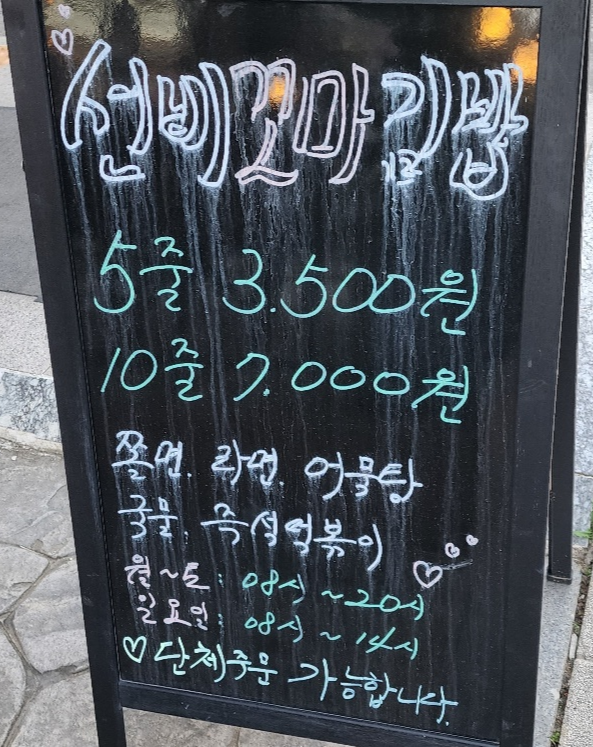 선비꼬마김밥
5줄 3.500원
10줄 7.000원
쫄면. 라면. 어묵탕
국물. 즉석떡볶이
월~토: 08시~20시
일요일: 08시~14시
단체주문 가능합니다.